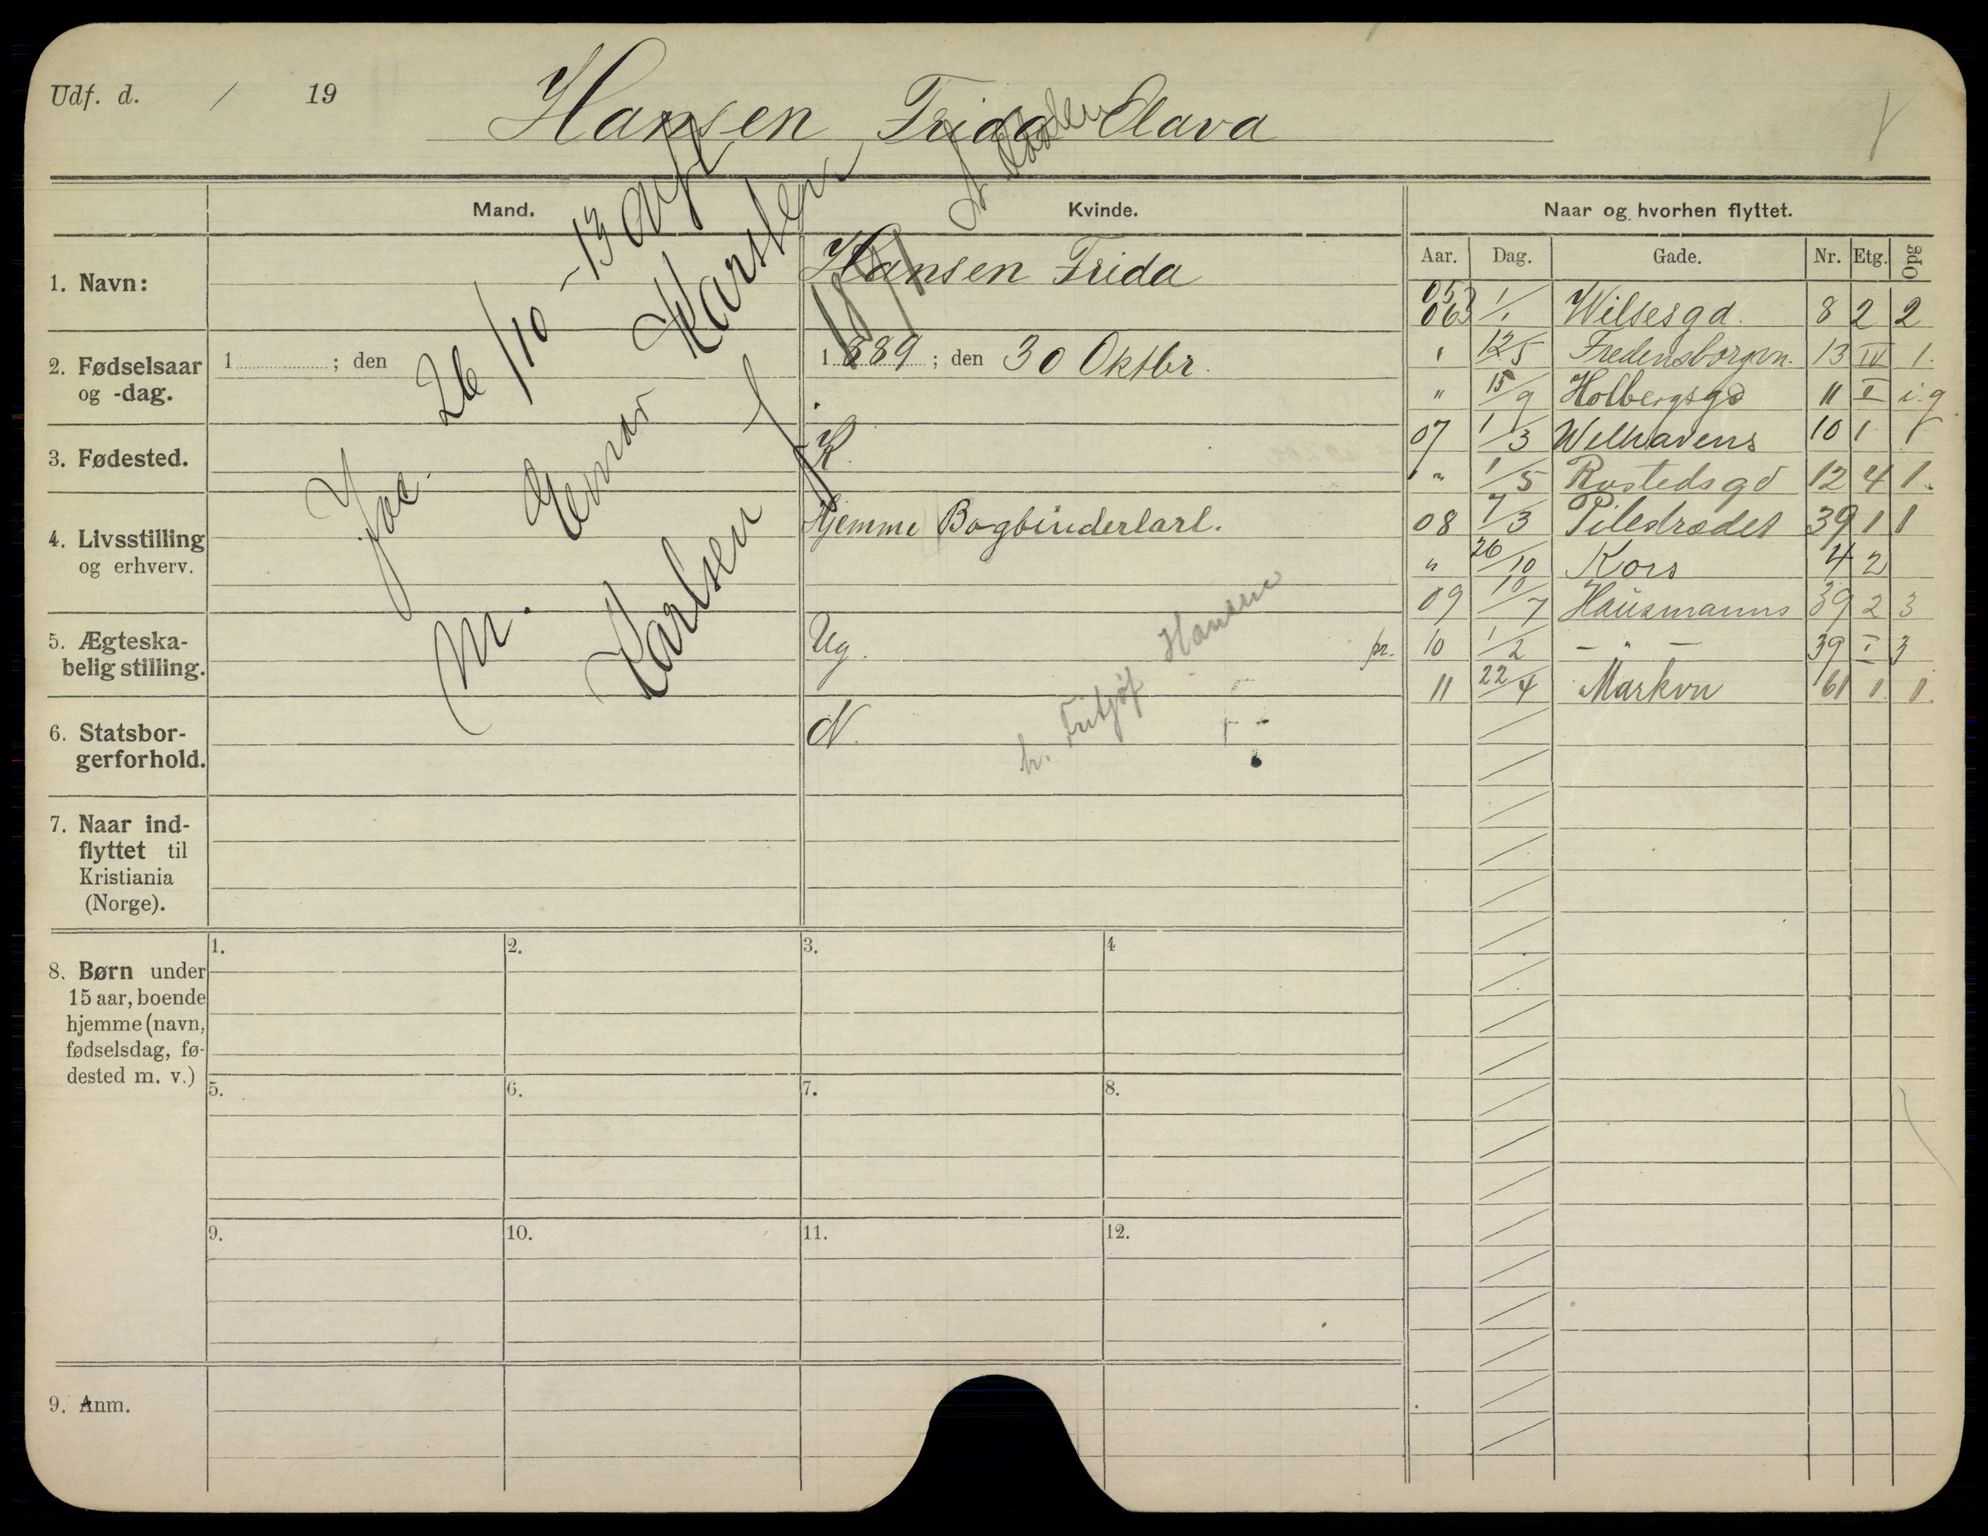 Udf. d. / 19
Hansen, Frida Olava
Mand.
Kvinde.
Naar og hvorhen flyttet.
Aar. Dag. Gade. Nr. Etg. Opg
1. Navn:
Hansen Frida
2. Fødselsaar og -dag.
1 ; den
1889 ; den 30 Oktbr.
3. Fødested.
K.
4. Livsstilling og erhverv.
Hjemme Bogbinderlærl.
5. Ægteska-
belig stilling.
Ug. pr.
6. Statsbor-
gerforhold.
N.
h. Fritjøf Hansen
7. Naar ind-
flyttet til
Kristiania
(Norge).
26/10 - 13
m. Einar Karsten
Karlsen f. 18/1
05
06 1/1 Wilsesgd. 8 2 2
" 12/5 Fredensborgvn. 13 IV 1.
" 15/9 Holbergsgd 11 I i.g.
07 1/3 Welhavens 10 1 1
" 1/5 Rostedsgd 12 4 1.
08 7/3 Pilestrædet 39 1 1
" 26/10 Kors 4 2
09 10/7 Hausmanns 39 2 3
10 1/2 — " — 39 I 3
11 22/4 Markvn 61 1. 1.
8. Børn under
15 aar, boende
hjemme (navn,
fødselsdag, fø-
dested m. v.)
1. 2. 3. 4
5. 6. 7. 8.
9. 10. 11. 12.
9. Anm.